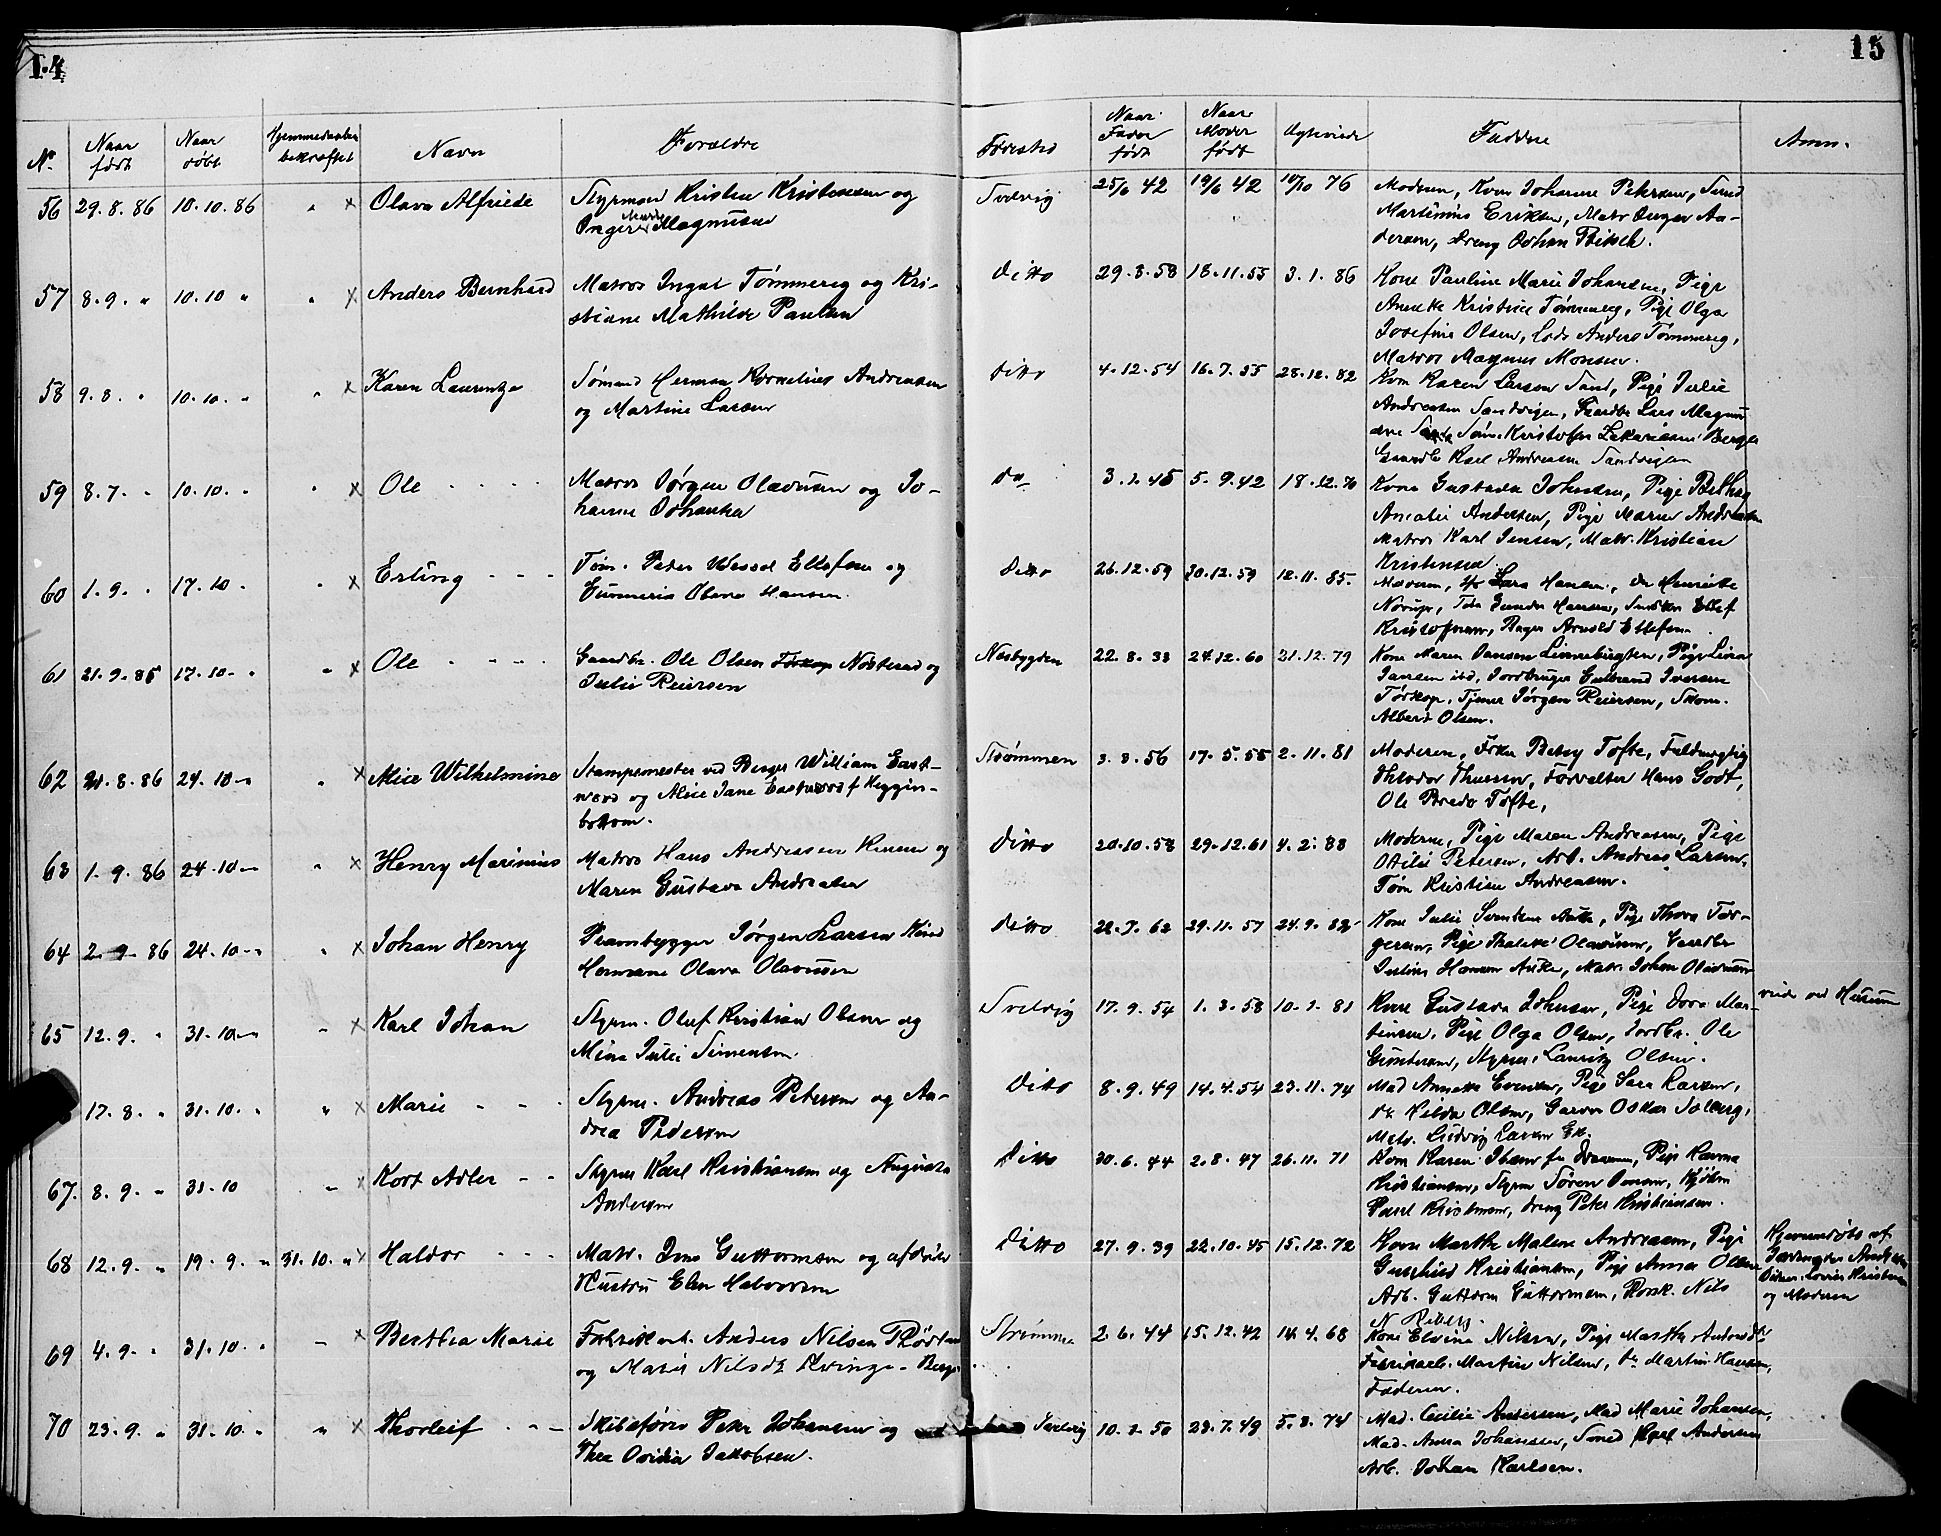 14
15
No. Naar født Naar døbt Hjemmedaaben bekræftet Navn Forældre Fødested Naar Fader født Naar Moder født Ægteviede Faddere Anm.
56 29. 8. 86 10. 10. 86 " x Olava Alfriede Styrmand Kristen Kristensen og Svelvig 25/1 42 19/6 42 10/10 76 Moderen, Kone Johanne Petersen, Smed
Inger Marie Magnusen Martinius Eriksen, Matr Ansgar An-
dersen, Dreng Johan
57 8. 9. " 10. 10 " " x Anders Bernhard Matros Ingvat Tømmereg og Kri- Ditto 29. 8. 58 18. 11. 55 3. 1. 86 Kone Pauline Marie Johansen, Pige
stiane Mathilde Paulsen Annette Kristine Tømmereg, Pige Olga
Josefine Olsen, Lods Anders Tømmereg,
Matros Magnus Monsen.
58 9. 8. " 10. 10. " " x Karen Laurentze Sømand Herman Kornelius Andreasen Ditto 4. 12. 54 16. 7. 55 28. 12. 82 Kone Karen Larsen Sand, Pige Julie
og Martine Larsen Andreasen Sandvigen, Gaardbr Lars Magnu
sen Sande Søm. Kristofer Zakariasen Berger
Gaardb Karl Andreasen Sandvigen
59 8. 7. " 10. 10. " " x Ole Matros Jørgen Olavesen og Jo- Do 3. 1. 45 5. 9. 42 18. 12. 70 Kone Gustava Johnsen, Pige
hanne Johansen Amalie Andersen, Pige Maren Andreasen
Matros Karl Jensen, Matr. Kristian
Kristensen
60 1. 9. " 17. 10 " " x Erling Tøm. Peder Wessel Ellefsen og Ditto 26. 12. 59 30. 12. 59 12. 11. 85. Moderen, Lars Hansen, Do Henriette
Gunneria Olava Hansen. Norup, Gunder Hansen, Ellef
Kristoffersen, Arnold Ellefsen
61 21. 9. 85 17. 10 - " " x Ole Gaardbr. Ole Olsen Tørkop Nøsterud og Nesbygden 22. 8. 33 24. 12. 60 21. 12. 79 Kone Maren Jansen Linnebugten, Pige Lina
Julie Reiersen Jansen ibid, Jordbruger Gulbrand Iversen
Tørkop, Tjener Jørgen Reiersen, Skom.
Albert Olsen.
62 21. 8. 86 24. 10 - " x Alice Wilhelmine Stampemester ved Berger William East- Strømmen 3. 8. 56 17. 5. 55 2. 11. 81 Moderen, Frkn Betsy Tofte, Fuldmægtig
wood og Alice Jane Eastwood f Heggin- Theodor Thuesen, Forvalter Hans Godt,
bottom. Ole Bredo Tofte,
63 1. 9. 86 24. 10 - " x Henry Marinius Matros Hans Andreasen og Ditto 20. 10. 58 29. 12. 61 4. 2. 88 Moderen, Pige Maren Andreasen, Pige
Maren Gustava Andreasen Otilie Petersen, Arb. Andreas Larsen,
Tøm Kristian Andreasen.
64 2. 9. 86 24. 10 - " x Johan Henry Prambygger Jørgen Larsen Ditto 22. 7. 62 29. 11. 57 24. 9. 82 Kone Julie Svendsen, Pige Thora Tor-
Hermane Olava Olavesen gersen, Pige Thalette Olavesen, Gaardbr
Julius Hansen, Matr. Johan Olavesen
65 12. 9. " 31. 10 - " x Karl Johan Styrm. Oluf Kristian Olsen og Svelvig 17. 9. 54 1. 3. 58 10. 2. 81 Kone Gustava Johnsen, Pige Dora Mar- viede ved Hurum
Mina Julie Simensen. tinsen, Pige Olga Olsen, Jordbr. Ole
Gundersen, Styrm. Lauritz Olsen.
17. 8. " 31. 10. " " x Marie Styrm. Andreas Petersen og An- Ditto 8. 9. 49 14. 4. 54 23. 11. 74 Mad Annette Evensen, Pige Sara Larsen,
drea Pedersen do Hilda Olsen, Garver Oskar Solberg,
Matr. Ludvig Larsen Ek.
67. 8. 9. " 31. 10 " x Kort Adler Styrm Karl Kristiansen og Augusta Ditto 30. 6. 44 2. 8. 47 26. 11. 71 Kone Karen Ibsen fra Drammen, Pige Hanna
Andersen Kristiansen, Styrm Søren Jensen, Kjøbm
Paul Kristensen, Dreng Peter Kristiansen.
68 12. 9. " 19. 9. " 31. 10. " x Haldor Matr. Jens Guttormsen og afdøde Ditto 27. 9. 39 22. 10. 45 15. 12. 72 Kone Marthe Malene Andreasen, Pige Hjemmedøbt af
Hustru Elen Halvorsen Gunhild Kristiansen, Pige Anna Olsen
Arb. Guttorm Guttormsen, Nils Kristensen
N Riberg. og Moderen
69 4. 9. " 31. 10 " " x Berthea Marie Fabrikarb. Anders Nilsen Rødtan Strømmen 2. 6. 44 15. 12. 42 14. 4. 68 Kone Elvina Nilsen, Pige Marthe Andersdtr,
og Maren Nilsdtr Kvinge - Berger Fabrikarb. Martin Nilsen, do Martin Hansen,
Faderen.
70 23. 9. " 31. 10. " " x Thorleif Skibsfører Peter Johansen og Svelvig 10. 2. 50 23. 7. 49 5. 8. 74 Mad. Cecilie Andersen, Mad Marie Johansen,
Thea Ovidia Jakobsen. Mad. Anna Johansen, Smed Karl Andersen
Arb. Johan Karlsen.